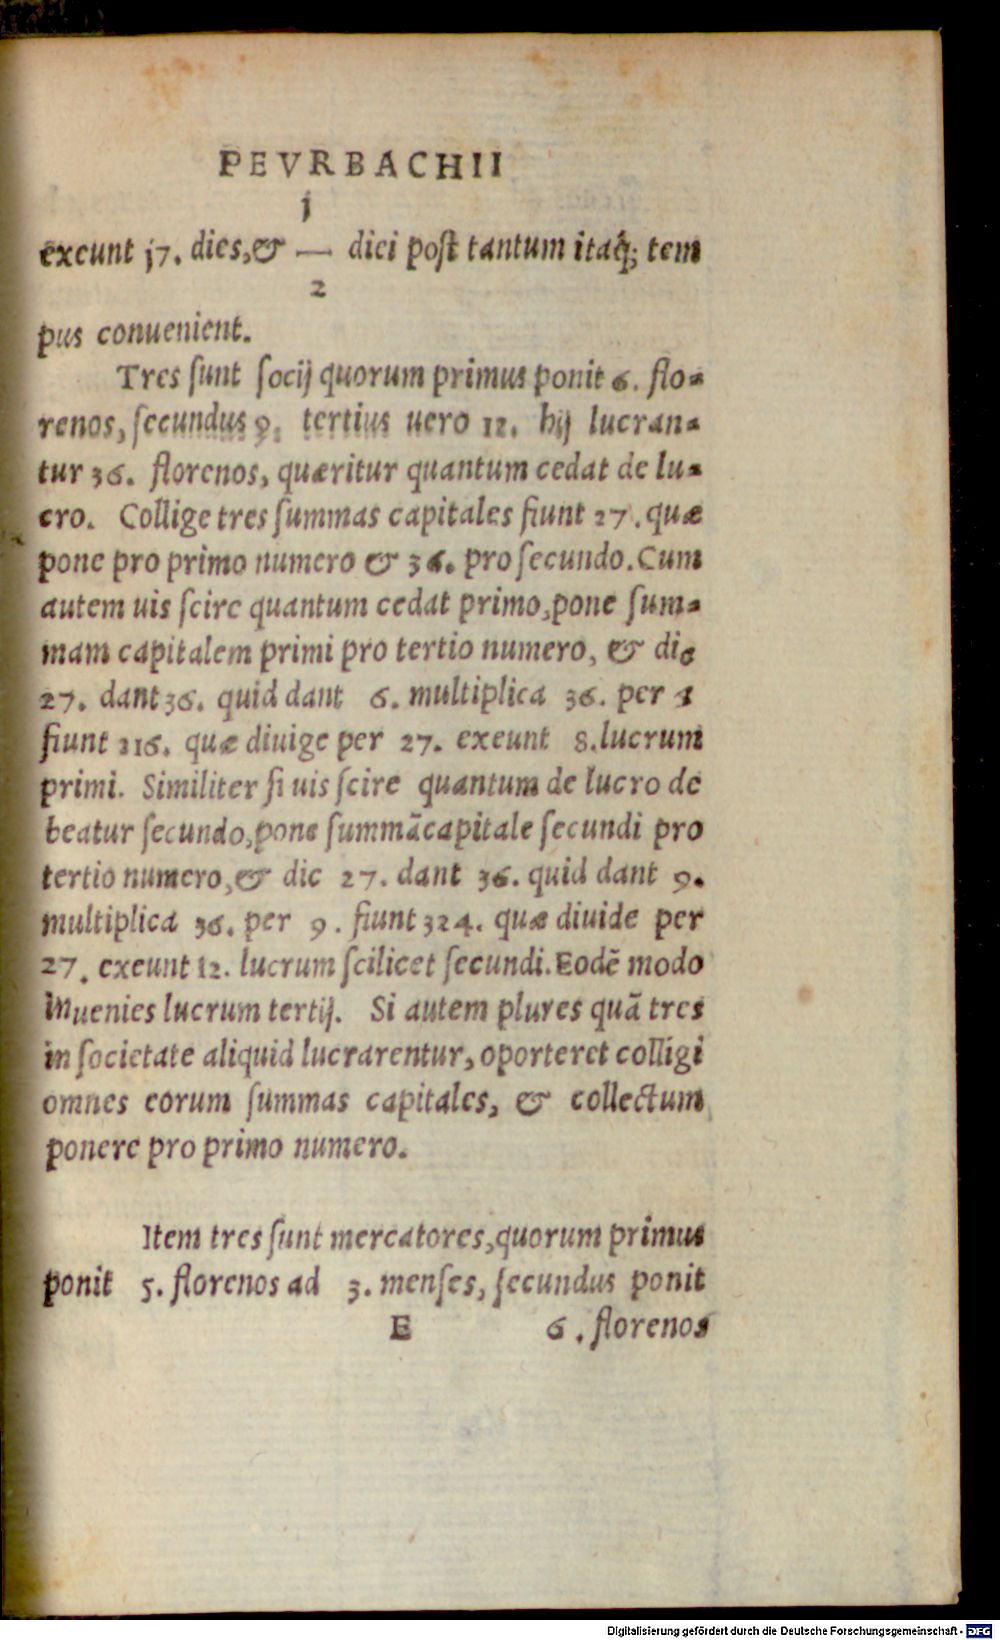 PEVRBACHII
j
exeunt j7. dies,& — diei post tantum itaq́; tem
2
pus conuenient.
Tres ſunt ſocij quorum primus ponit 6. flo-
renos, ſecundus 9. tertius uero 12. hij lucran-
tur 36. florenos, quæritur quantum cedat de lu-
cro. Collige tres ſummas capitales fiunt 27. quæ
pone pro primo numero & 36. pro ſecundo. Cum
autem uis ſcire quantum cedat primo, pone ſum-
mam capitalem primi pro tertio numero, & dic
27. dant 36. quid dant 6. multiplica 36. per
fiunt 216. quæ diuige per 27. exeunt 8. lucrum
primi. Similiter ſi uis ſcire quantum de lucro de
beatur ſecundo, pone ſummãcapitale ſecundi pro
tertio numero, & dic 27. dant 36. quid dant 9.
multiplica 36. per 9. fiunt 324. quæ diuide per
27. exeunt 12. lucrum ſcilicet ſecundi. Eodẽ modo
inuenies lucrum tertij. Si autem plures quã tres
in ſocietate aliquid lucrarentur, oporteret colligi
omnes eorum ſummas capitales, & collectum
ponere pro primo numero.
Item tres ſunt mercatores, quorum primus
ponit 5. florenos ad 3. menſes, ſecundus ponit
E 6. florenos
Digitalisierung gefördert durch die Deutsche Forschungsgemeinschaft - DFG